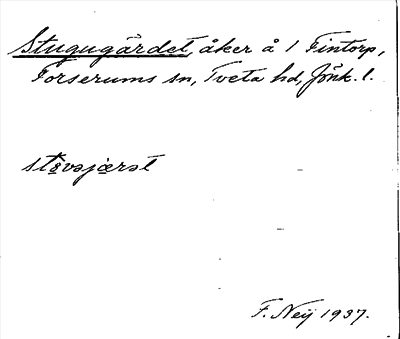 Stugugärdet, åker å 1 Fintorp,
Forserums sn, Tveta hd, Jönk. l.
stôvəjærət
F. Neij 1937.